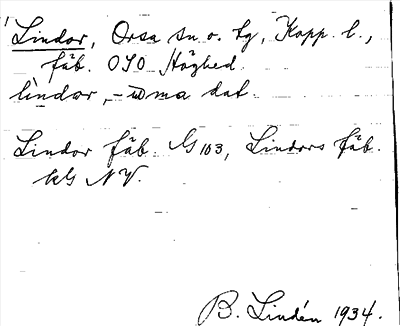 Lindor, Orsa sn o. tg, Kopp. l.,
fäb. OSO Höghed.
lìndor, -ωma dat.
Lindor fäb. G 103, Lindors fäb.
kG NV.
B. Lindén 1934.